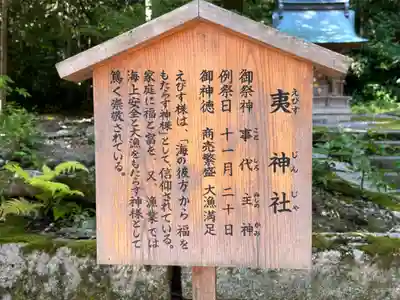 夷神社
えびす じんじゃ
御祭神 事代主神
こと しろ ぬしの かみ
例祭日 十一月二十日
御神徳 商売繁盛 大漁満足
えびす様は、「海の彼方」から福を
もたらす神様として、信仰されている。
家庭に福と富を、又、漁業では
海上安全と大漁をもたらす神様として
篤く崇敬されている。